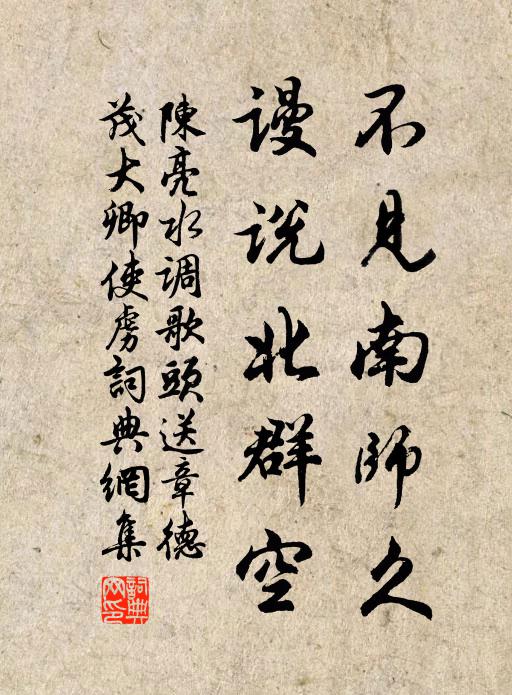 不見南師久
謾說北群空
陳亮水調歌頭送章德
茂大卿使虜詞典網集
詞典網印